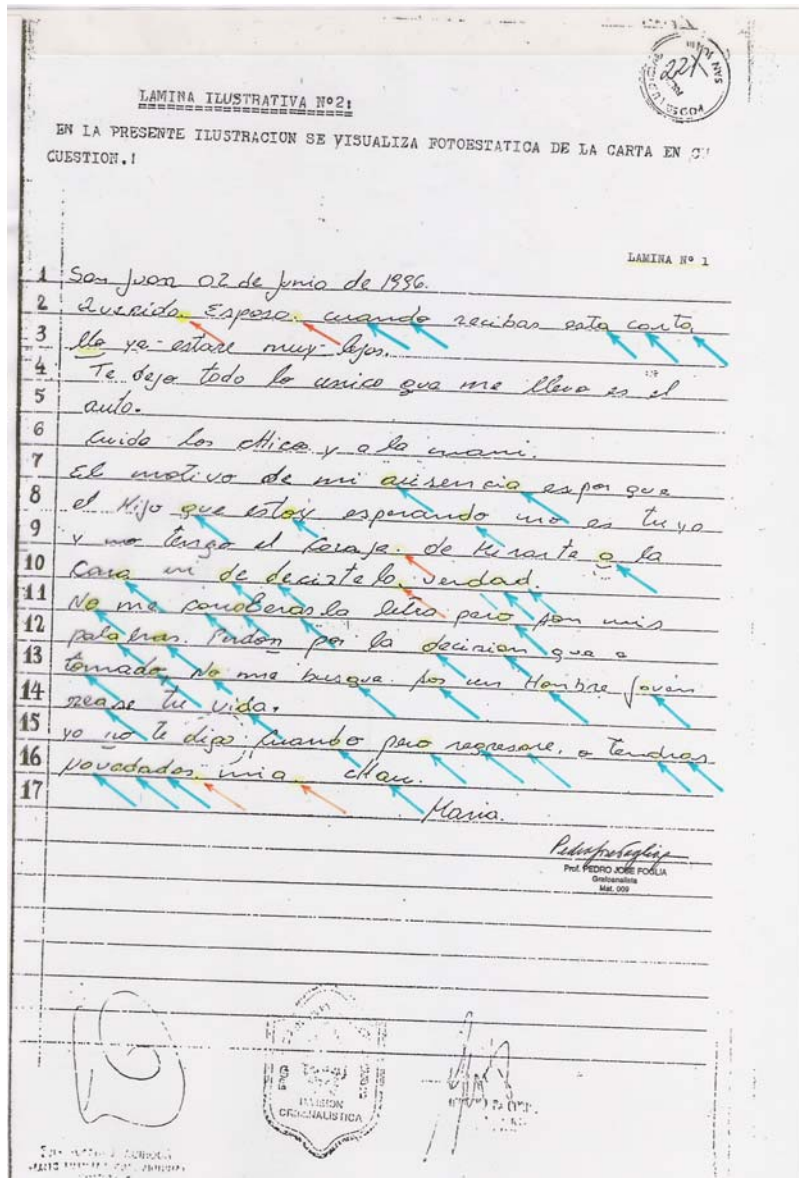 221
SAN JUAN
LAMINA ILUSTRATIVA Nº2:
EN LA PRESENTE ILUSTRACION SE VISUALIZA FOTOESTATICA DE LA CARTA EN
CUESTION.!
LAMINA Nº 1
1 San Juan 02 de Junio de 1996.
2 Querido Esposo. cuando recibas esta carta
3 llo ya estare muy lejos.
4 Te dejo todo lo unico que me llevo es el
5 auto.
6 Cuida los cHicos y a la mami.
7 El motivo de mi ausencia es por que
8 el Hijo que estoy esperando no es tuyo
9 y no tengo el coraje. de mirarte a la
10 Cara ni de decirte la verdad.
11 No me la letra pero son mis
12 palabras. Perdon por la decision que e
13 tomado, No me busque. sos un Hombre joven
14 rease tu vida.
15 yo no te digo cuando pero regresare. o tendras
16 novedades mia cHau.
17 Maria.
Prof. PEDRO JOSE FOGLIA
Grafoanalista
Mat. 009
DIVISION
CRIMINALISTICA